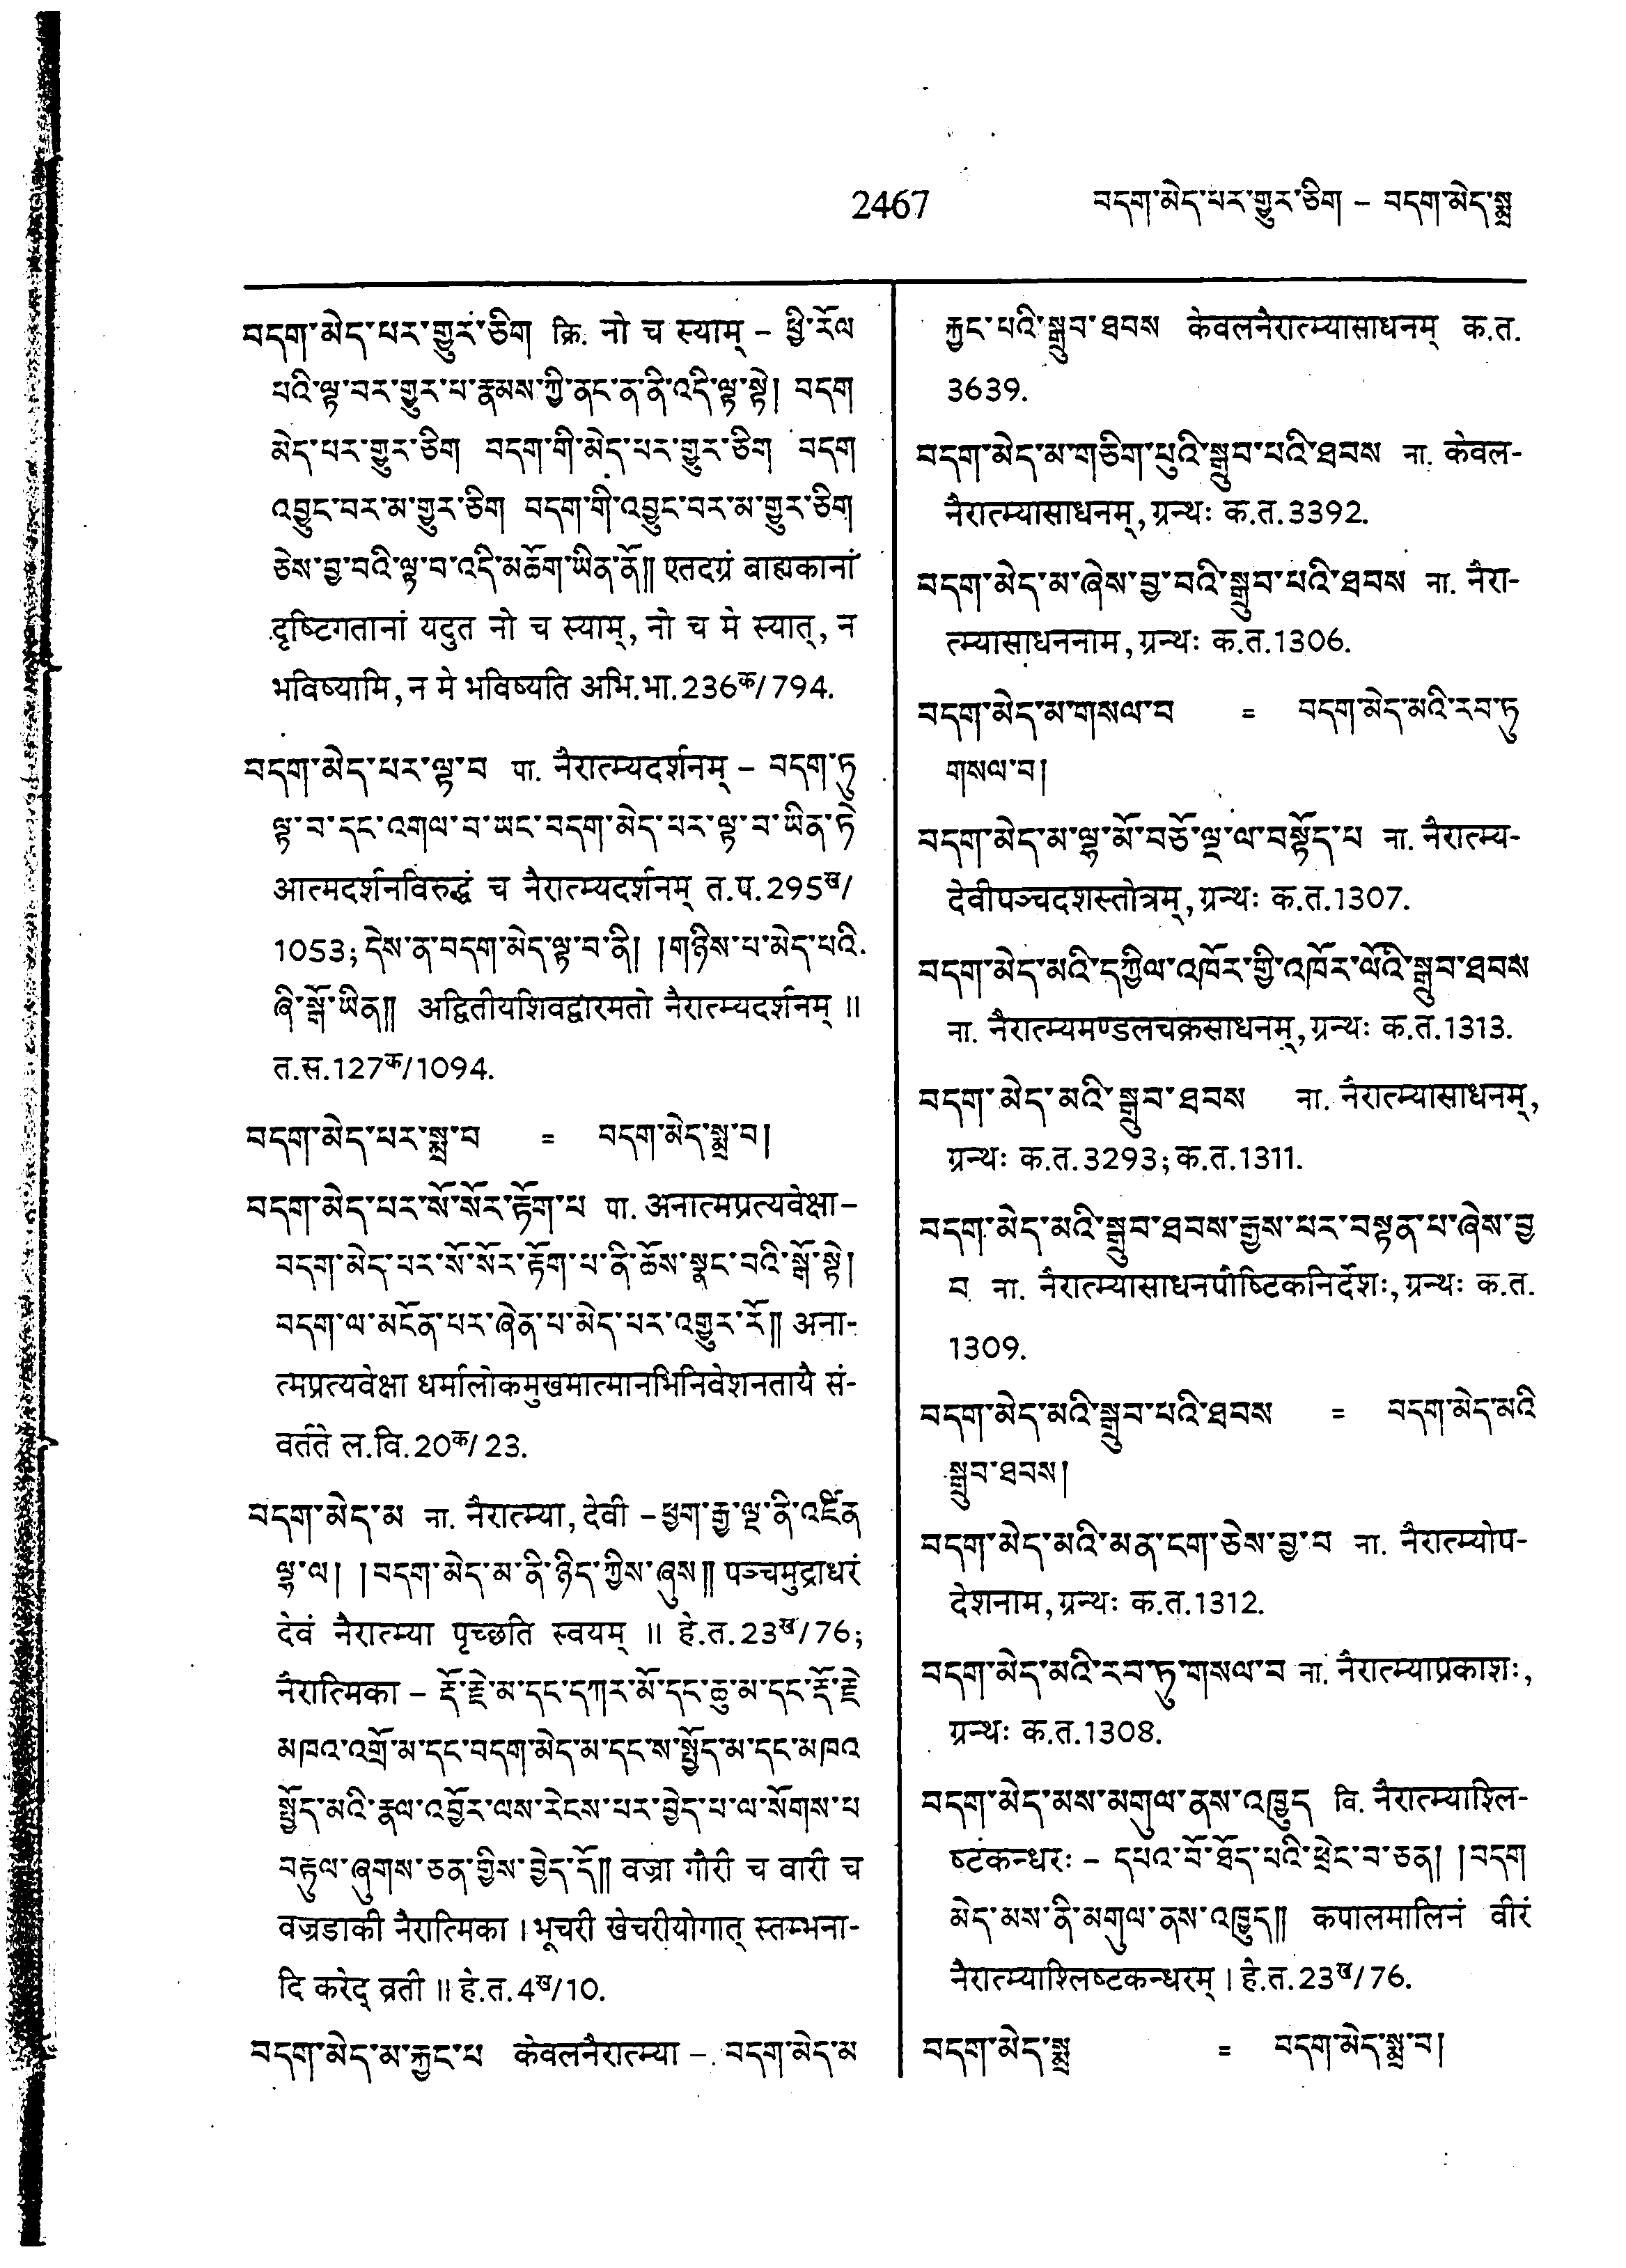 2467
བདག་མེད་པར་གྱུར་ཅིག – བདག་མེད་སྨྲ
བདག་མེད་པར་གྱུར་ཅིག क्रि. नो च स्याम् – ཕྱི་རོལ
པའི་ལྟ་བར་གྱུར་པ་རྣམས་ཀྱི་ནང་ན་ནི་འདི་ལྟ་སྟེ། བདག
མེད་པར་གྱུར་ཅིག བདག་གི་མེད་པར་གྱུར་ཅིག བདག
འབྱུང་བར་མ་གྱུར་ཅིག བདག་གི་འབྱུང་བར་མ་གྱུར་ཅིག
ཅེས་བྱ་བའི་ལྟ་བ་འདི་མཆོག་ཡིན་ནོ༎ एतदग्रं बाह्यकानां
दृष्टिगतानां यदुत नो च स्याम्, नो च मे स्यात्, न
भविष्यामि, न मे भविष्यति अभि.भा.236क/794.
བདག་མེད་པར་ལྟ་བ पा. नैरात्म्यदर्शनम् – བདག་ཏུ
ལྟ་བ་དང་འགལ་བ་ཡང་བདག་མེད་པར་ལྟ་བ་ཡིན་ཏེ
आत्मदर्शनविरुद्धं च नैरात्म्यदर्शनम् त.प.295ख/
1053; དེས་ན་བདག་མེད་ལྟ་བ་ནི། །གཉིས་པ་མེད་པའི་
ཞི་སྒོ་ཡིན༎ अद्वितीयशिवद्वारमतो नैरात्म्यदर्शनम् ॥
त.स.127क/1094.
བདག་མེད་པར་སྨྲ་བ = བདག་མེད་སྨྲ་བ།
བདག་མེད་པར་སོ་སོར་རྟོག་པ पा. अनात्मप्रत्यवेक्षा –
བདག་མེད་པར་སོ་སོར་རྟོག་པ་ནི་ཆོས་སྣང་བའི་སྒོ་སྟེ།
བདག་ལ་མངོན་པར་ཞེན་པ་མེད་པར་འགྱུར་རོ༎ अना-
त्मप्रत्यवेक्षा धर्मालोकमुखमात्मानभिनिवेशनतायै सं-
वर्तते ल.वि.20क/23.
བདག་མེད་མ ना. नैरात्म्या, देवी – ཕྱག་རྒྱ་ལྔ་ནི་འཛིན
ལྷ་ལ། །བདག་མེད་མ་ནི་ཉིད་ཀྱིས་ཞུས༎ पञ्चमुद्राधरं
देवं नैरात्म्या पृच्छति स्वयम् ॥ हे.त.23ख/76;
नैरात्मिका – རྡོ་རྗེ་མ་དང་དཀར་མོ་དང་ཆུ་མ་དང་རྡོ་རྗེ
མཁའ་འགྲོ་མ་དང་བདག་མེད་མ་དང་ས་སྤྱོད་མ་དང་མཁའ
སྤྱོད་མའི་རྣལ་འབྱོར་ལས་རེངས་པར་བྱེད་པ་ལ་སོགས་པ
བརྟུལ་ཞུགས་ཅན་གྱིས་བྱེད་དོ༎ वज्रा गौरी च वारी च
वज्रडाकी नैरात्मिका । भूचरी खेचरीयोगात् स्तम्भना-
दि करेद् व्रती ॥ हे.त.4ख/10.
བདག་མེད་མ་རྐྱང་པ केवलनैरात्म्या – བདག་མེད་མ
རྐྱང་པའི་སྒྲུབ་ཐབས केवलनैरात्म्यासाधनम् क.त.
3639.
བདག་མེད་མ་གཅིག་པུའི་སྒྲུབ་པའི་ཐབས ना. केवल-
नैरात्म्यासाधनम्, ग्रन्थः क.त.3392.
བདག་མེད་མ་ཞེས་བྱ་བའི་སྒྲུབ་པའི་ཐབས ना. नैरा-
त्म्यासाधननाम, ग्रन्थः क.त.1306.
བདག་མེད་མ་གསལ་བ = བདག་མེད་མའི་རབ་ཏུ
གསལ་བ།
བདག་མེད་མ་ལྷ་མོ་བཅོ་ལྔ་ལ་བསྟོད་པ ना. नैरात्म्य-
देवीपञ्चदशस्तोत्रम्, ग्रन्थः क.त.1307.
བདག་མེད་མའི་དཀྱིལ་འཁོར་གྱི་འཁོར་ལོའི་སྒྲུབ་ཐབས
ना. नैरात्म्यमण्डलचक्रसाधनम्, ग्रन्थः क.त.1313.
བདག་མེད་མའི་སྒྲུབ་ཐབས ना. नैरात्म्यासाधनम्,
ग्रन्थः क.त.3293; क.त.1311.
བདག་མེད་མའི་སྒྲུབ་ཐབས་རྒྱས་པར་བསྟན་པ་ཞེས་བྱ
བ ना. नैरात्म्यासाधनपौष्टिकनिर्देशः, ग्रन्थः क.त.
1309.
བདག་མེད་མའི་སྒྲུབ་པའི་ཐབས = བདག་མེད་མའི
སྒྲུབ་ཐབས།
བདག་མེད་མའི་མན་ངག་ཅེས་བྱ་བ ना. नैरात्म्योप-
देशनाम, ग्रन्थः क.त.1312.
བདག་མེད་མའི་རབ་ཏུ་གསལ་བ ना. नैरात्म्याप्रकाशः,
ग्रन्थः क.त.1308.
བདག་མེད་མས་མགུལ་ནས་འཁྱུད वि. नैरात्म्याश्लि-
ष्टकन्धरः – དཔའ་བོ་ཐོད་པའི་ཕྲེང་བ་ཅན། །བདག
མེད་མས་ནི་མགུལ་ནས་འཁྱུད༎ कपालमालिनं वीरं
नैरात्म्याश्लिष्टकन्धरम् । हे.त.23ख/76.
བདག་མེད་སྨྲ = བདག་མེད་སྨྲ་བ།